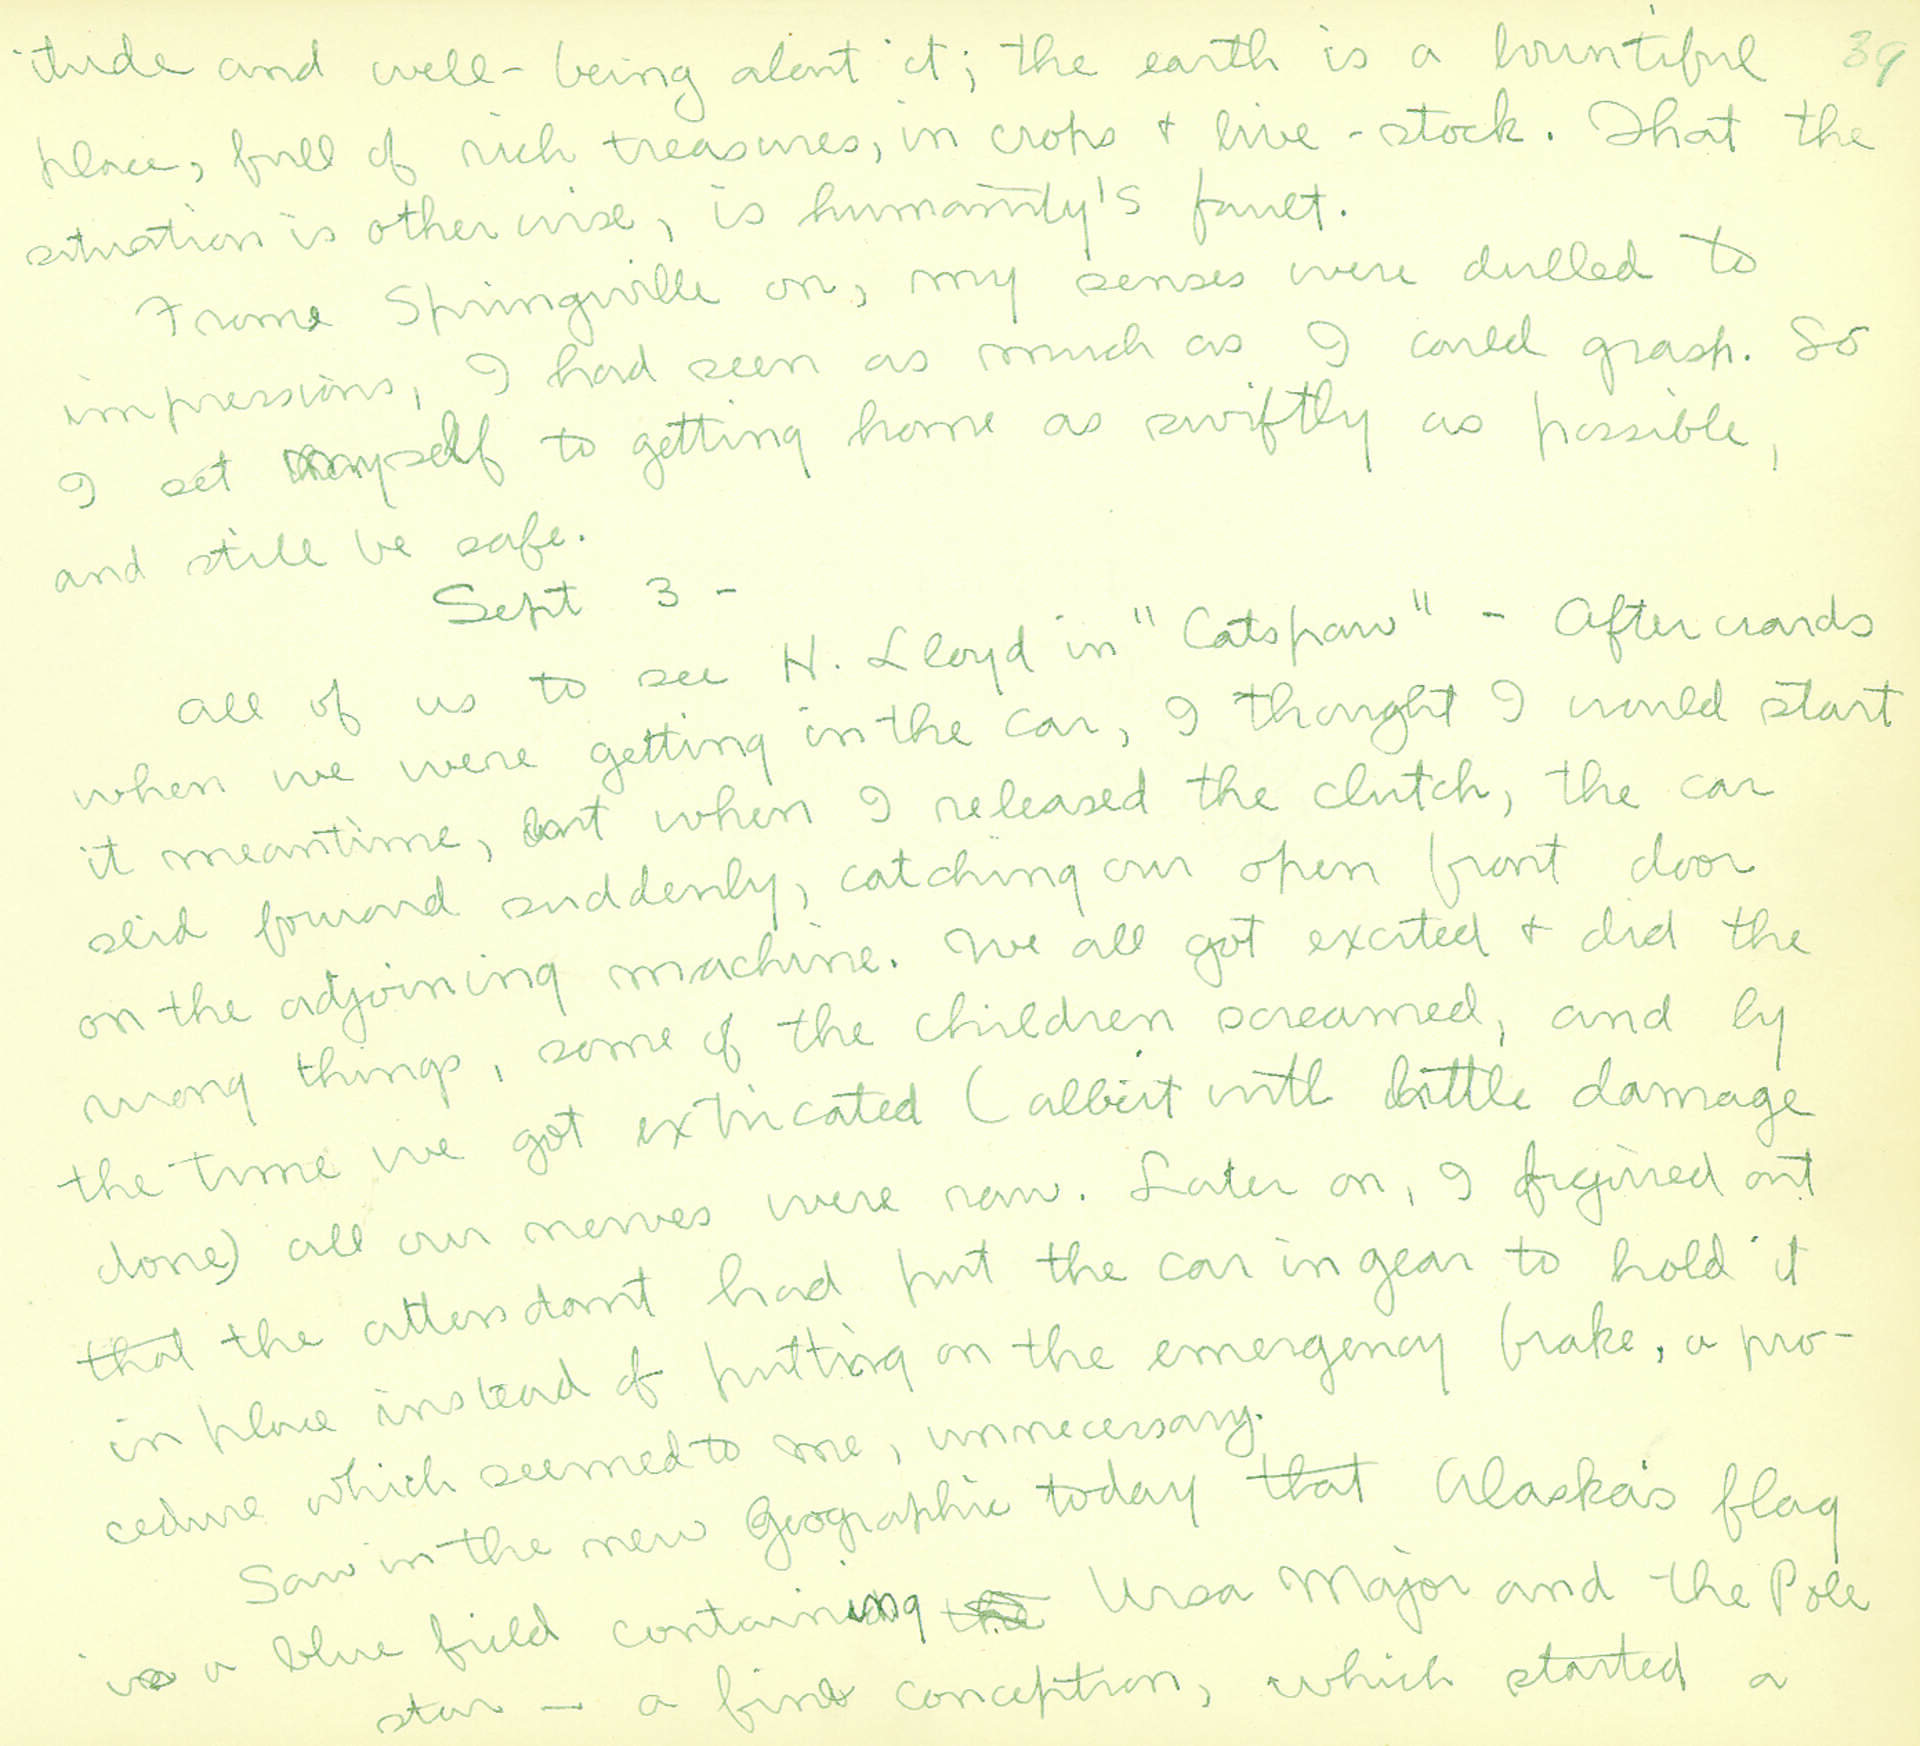 39
itude and well-being about it; the earth is a bountiful
place, full of rich treasures, in crops & live-stock. That the
situation is otherwise, is humanity's fault.
From Springville on, my senses were dulled to
impressions, I had seen as much as I could grasp. So
I set myself to getting home as swiftly as possible,
and still be safe.
Sept 3 -
All of us to see H. Lloyd in "Catspaw" - Afterwards
when we were getting in the car, I thought I would start
it meantime, but when I released the clutch, the car
slid foward suddenly, catching our open front door
on the adjoining machine. We all got excited & did the
wrong things, some of the children screamed, and by
the time we got extricated (albeit with little damage
done) all our nerves were raw. Later on, I figured out
that the attendant had put the car in gear to hold it
in place instead of putting on the emergency brake, a pro-
cedure which seemed to me, unnecessary.
Saw in the new Geographic today that Alaska's flag
is a blue field containing the Ursa Major and the Pole
star - a fine conception, which started a